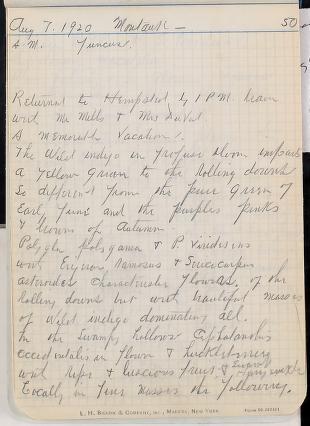 Aug 7. 1920 Montauk — 50
A.M. Juncus.
Returned to Hempstead by 1 P.M. train
with Mr Mills & Mrs DuVal
A Memorable Vacation!
The Wild indigo in profuse bloom imparts
a yellow green to the rolling downs
So different from the pure green of
Early June and the purples pinks
& browns of Autumn
Polygala polygama & P. viridescens
with Eryngo ramosus & Sericocarpus
asteroides characteristic flowers, of the
rolling downs but with beautiful masses
of Wild indigo dominating all.
In the Swampy hollows Cephalanthus
occidentalis in flower & huckleberry
with ripe & luscious fruit &
Locally in fine masses the following.
L. H. BIGLOW & COMPANY, INC., MAKERS, NEW YORK